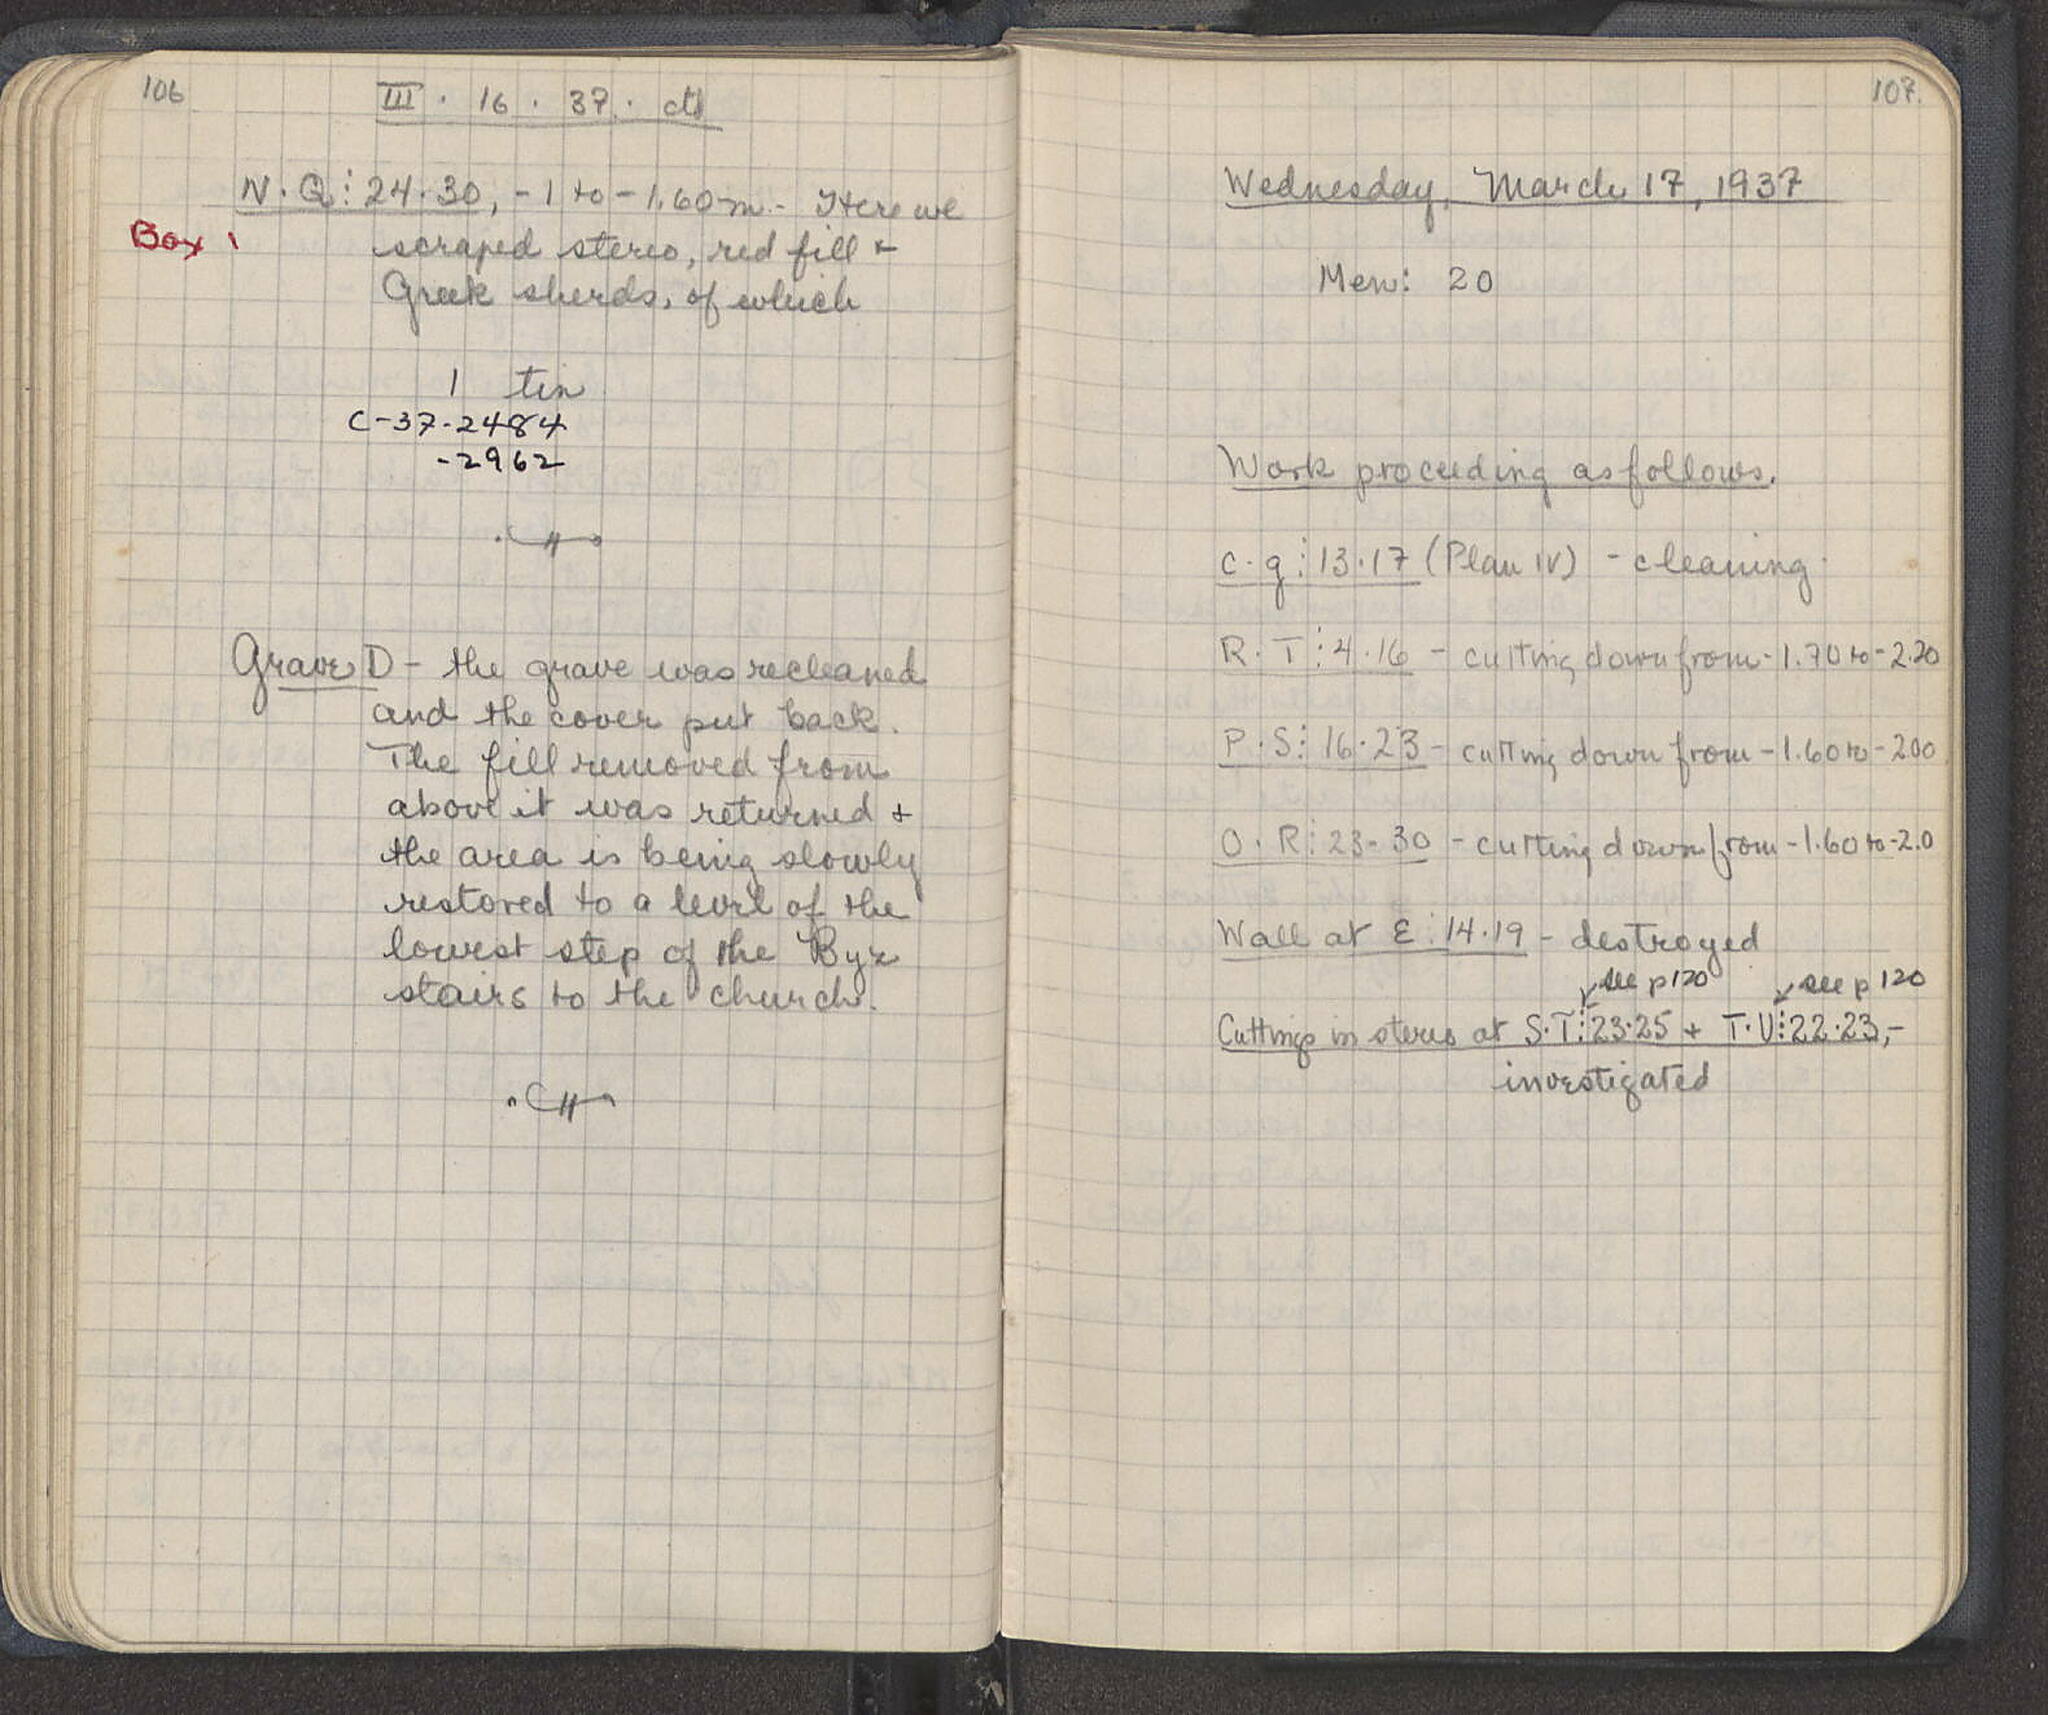 106
III · 16 · 37 · ctd
N·Q:24·30, -1 to -1.60 m. - Here we
Box 1
scraped stereo, red fill +
Greek sherds, of which
1 tin
C-37-2484
-2962
Grave D - the grave was recleaned
and the cover put back.
The fill removed from
above it was returned +
the area is being slowly
restored to a level of the
lowest step of the Byz
stairs to the church.
107.
Wednesday, March 17, 1937
Men: 20
Work proceeding as follows.
C·g:13·17 (Plan IV) - cleaning.
R·T:4·16 - cutting down from -1.70 to -2.20
P·S:16·23 - cutting down from -1.60 to -2.00
O·R:23-30 - cutting down from -1.60 to -2.0
Wall at E:14·19 - destroyed
see p120 see p120
Cuttings in stereo at S·T:23·25 + T·U:22·23, -
investigated